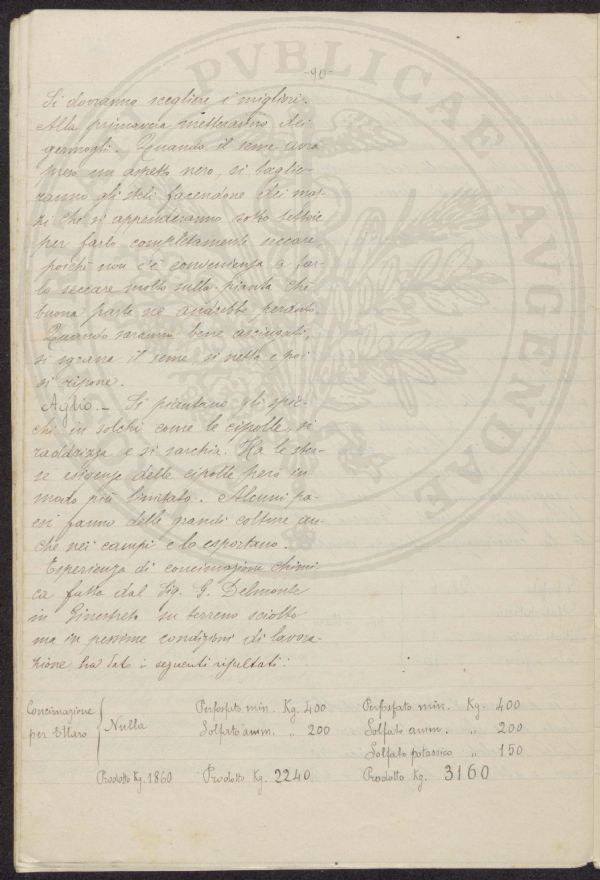 -90-
Si dovranno scegliere i migliori.
Alla primavera metteranno dei
germogli. Quando il seme avrà
preso un aspetto nero, si taglie-
ranno gli steli facendone dei maz-
zi che si appenderanno sotto tettoie
per farlo completamente seccare
poichè non c'è convenienza a far-
lo seccare molto sulla pianta chè
buona parte ne andrebbe perduto.
Quando saranno bene asciugati,
si sgrana il seme si netta e poi
si ripone.
Aglio. - Si piantano gli spic-
chi in solchi come le cipolle, si
raddrizza e si sarchia. Ha le stes-
se esigenze delle cipolle però in
modo più limitato. Alcuni pa-
esi fanno delle grandi colture an-
che nei campi e lo esportano.
Esperienza di concimazione chimi
ca fatta dal Sig. G. Delmonte
in Ginestreto su terreno sciolto
ma in pessime condizioni di lavora-
zione ha dato i seguenti risultati:
Concimazione per Ettaro { Nulla Perfosfato min. Kg. 400 Perfosfato min. Kg. 400
Solfato amm. " 200 Solfato amm. " 200
Solfato potassico " 150
Prodotto Kg. 1860 Prodotto Kg. 2240 Prodotto Kg. 3160
PVBLICAE AVGENDAE